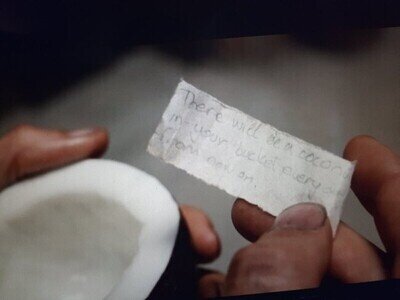 There will be a coconut
in your bucket every
from now on.